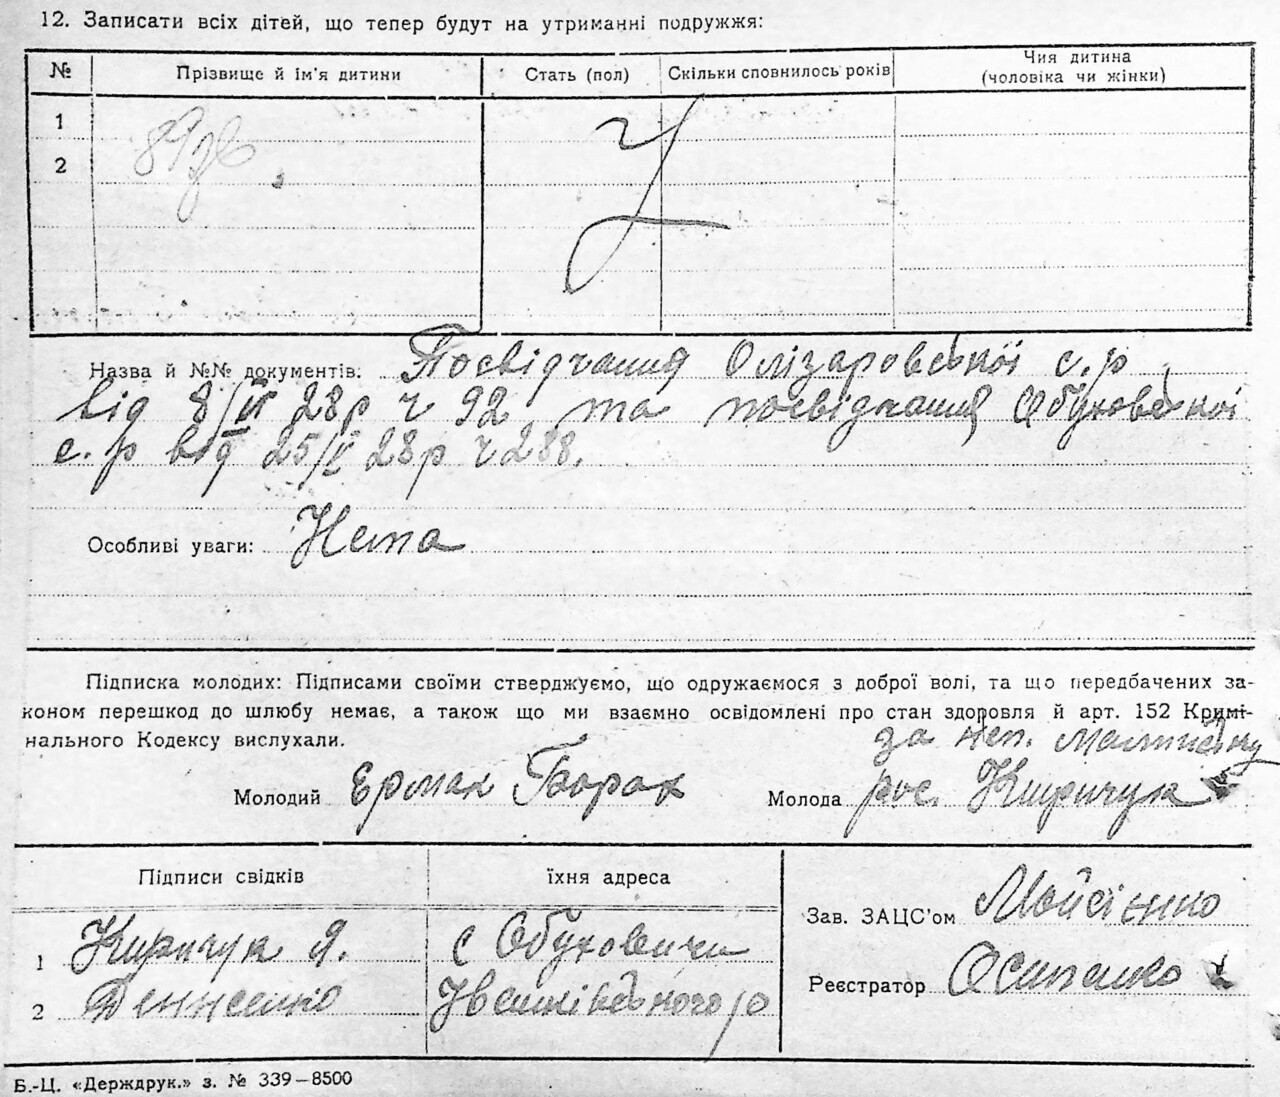 12. Записати всіх дітей, що тепер будут на утриманні подружжя:
№ Прізвище й ім'я дитини Стать (пол) Скільки сповнилось років Чия дитина (чоловіка чи жінки)
1
2
Назва й №№ документів: Посвідчання Олізаровської с. р
від 8/VI 28р ч 92 та посвідчання Обуховської
с. р від 25/V 28р ч 288.
Особливі уваги: Нема
Підписка молодих: Підписами своїми стверджуємо, що одружаємося з доброї волі, та що передбачених за-
коном перешкод до шлюбу немає, а також що ми взаємно освідомлені про стан здоровля й арт. 152 Кримі-
нального Кодексу вислухали.
за неп.
Молодий Ермак Молода рос. Киричук
Підписи свідків їхня адреса
Зав. ЗАЦС'ом Мойсієнко
1 Киричук Я. с Обуховичи
Реєстратор Осипенко
2 Денисенко Іванківського р
Б.-Ц. «Держдрук.» з. № 339—8500